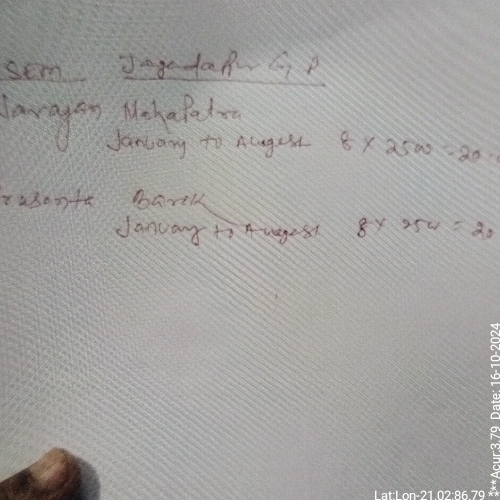 SEM Jagadalpur G.P
Narayan Mahapatra
January to Augest 8 x 2500 = 20
Prasanta Barik
January to Augest 8 x 250 = 20
Lat:Lon-21.02:86.79 *** Acur:3.79 Date: 16-10-2024